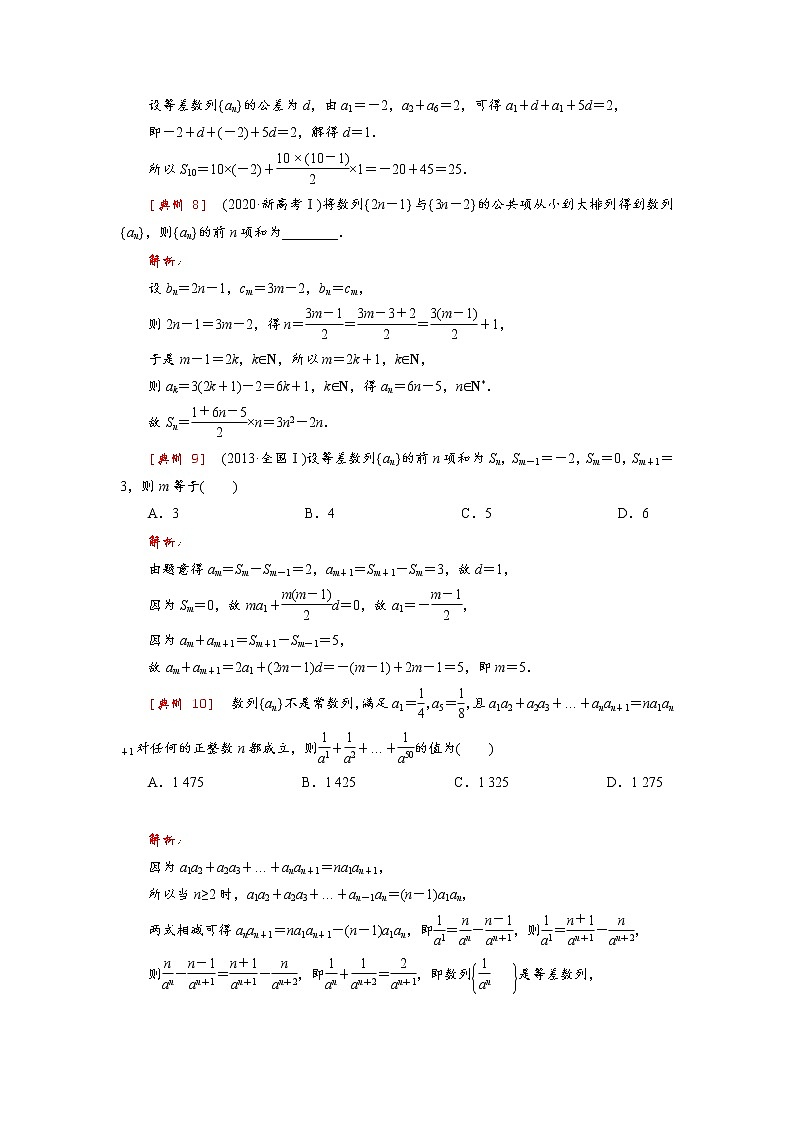 设等差数列{aₙ}的公差为 d，由 a₁＝－2，a₂＋a₆＝2，可得 a₁＋d＋a₁＋5d＝2，
即－2＋d＋(－2)＋5d＝2，解得 d＝1．
所以 S₁₀＝10×(－2)＋\frac{10×(10－1)}{2}×1＝－20＋45＝25．
[典例 8]　(2020·新高考Ⅰ)将数列{2n－1}与{3n－2}的公共项从小到大排列得到数列
{aₙ}，则{aₙ}的前 n 项和为________．
解析：
设 bₙ＝2n－1，cₘ＝3m－2，bₙ＝cₘ，
则 2n－1＝3m－2，得 n＝\frac{3m－1}{2}＝\frac{3m－3＋2}{2}＝\frac{3(m－1)}{2}＋1，
于是 m－1＝2k，k∈N，所以 m＝2k＋1，k∈N，
则 aₖ＝3(2k＋1)－2＝6k＋1，k∈N，得 aₙ＝6n－5，n∈N*．
故 Sₙ＝\frac{1＋6n－5}{2}×n＝3n²－2n．
[典例 9]　(2013·全国Ⅰ)设等差数列{aₙ}的前 n 项和为 Sₙ，Sₘ₋₁＝－2，Sₘ＝0，Sₘ₊₁＝
3，则 m 等于(　　)
A．3　B．4　C．5　D．6
解析：
由题意得 aₘ＝Sₘ－Sₘ₋₁＝2，aₘ₊₁＝Sₘ₊₁－Sₘ＝3，故 d＝1，
因为 Sₘ＝0，故 ma₁＋\frac{m(m－1)}{2}d＝0，故 a₁＝－\frac{m－1}{2}，
因为 aₘ＋aₘ₊₁＝Sₘ₊₁－Sₘ₋₁＝5，
故 aₘ＋aₘ₊₁＝2a₁＋(2m－1)d＝－(m－1)＋2m－1＝5，即 m＝5．
[典例 10]　数列{aₙ}不是常数列，满足 a₁＝\frac{1}{4}，a₅＝\frac{1}{8}，且 a₁a₂＋a₂a₃＋…＋aₙaₙ₊₁＝na₁aₙ
₊₁对任何的正整数 n 都成立，则\frac{1}{a^1}＋\frac{1}{a^2}＋…＋\frac{1}{a^{50}}的值为(　　)
A．1 475　B．1 425　C．1 325　D．1 275
解析：
因为 a₁a₂＋a₂a₃＋…＋aₙaₙ₊₁＝na₁aₙ₊₁，
所以当 n≥2 时，a₁a₂＋a₂a₃＋…＋aₙ₋₁aₙ＝(n－1)a₁aₙ，
两式相减可得 aₙaₙ₊₁＝na₁aₙ₊₁－(n－1)a₁aₙ，即\frac{1}{a^1}＝\frac{n}{a^n}－\frac{n－1}{a^{n＋1}}，则\frac{1}{a^1}＝\frac{n＋1}{a^{n＋1}}－\frac{n}{a^{n＋2}}，
则\frac{n}{a^n}－\frac{n－1}{a^{n＋1}}＝\frac{n＋1}{a^{n＋1}}－\frac{n}{a^{n＋2}}，即\frac{1}{a^n}＋\frac{1}{a^{n＋2}}＝\frac{2}{a^{n＋1}}，即数列{\frac{1}{a^n}}是等差数列，